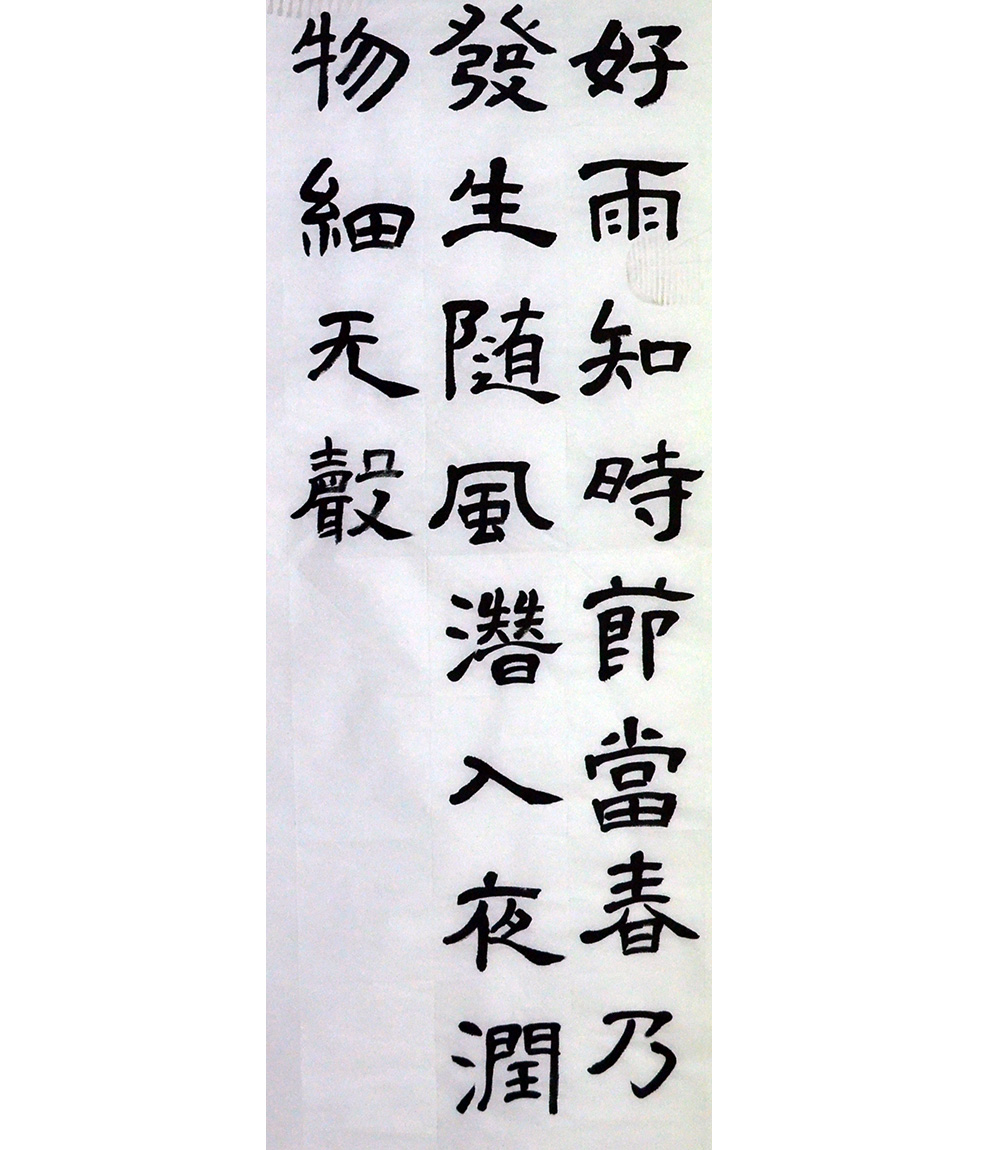 好雨知時節當春乃
發生随風潛入夜潤
物細无聲